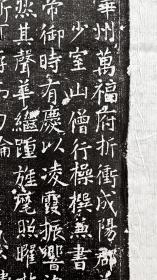 華州萬福府折衝成陽郡
少室山僧行操撰兼書
帝御時有慶以凌霞振響
然其聲華繼踵旌麾照曜